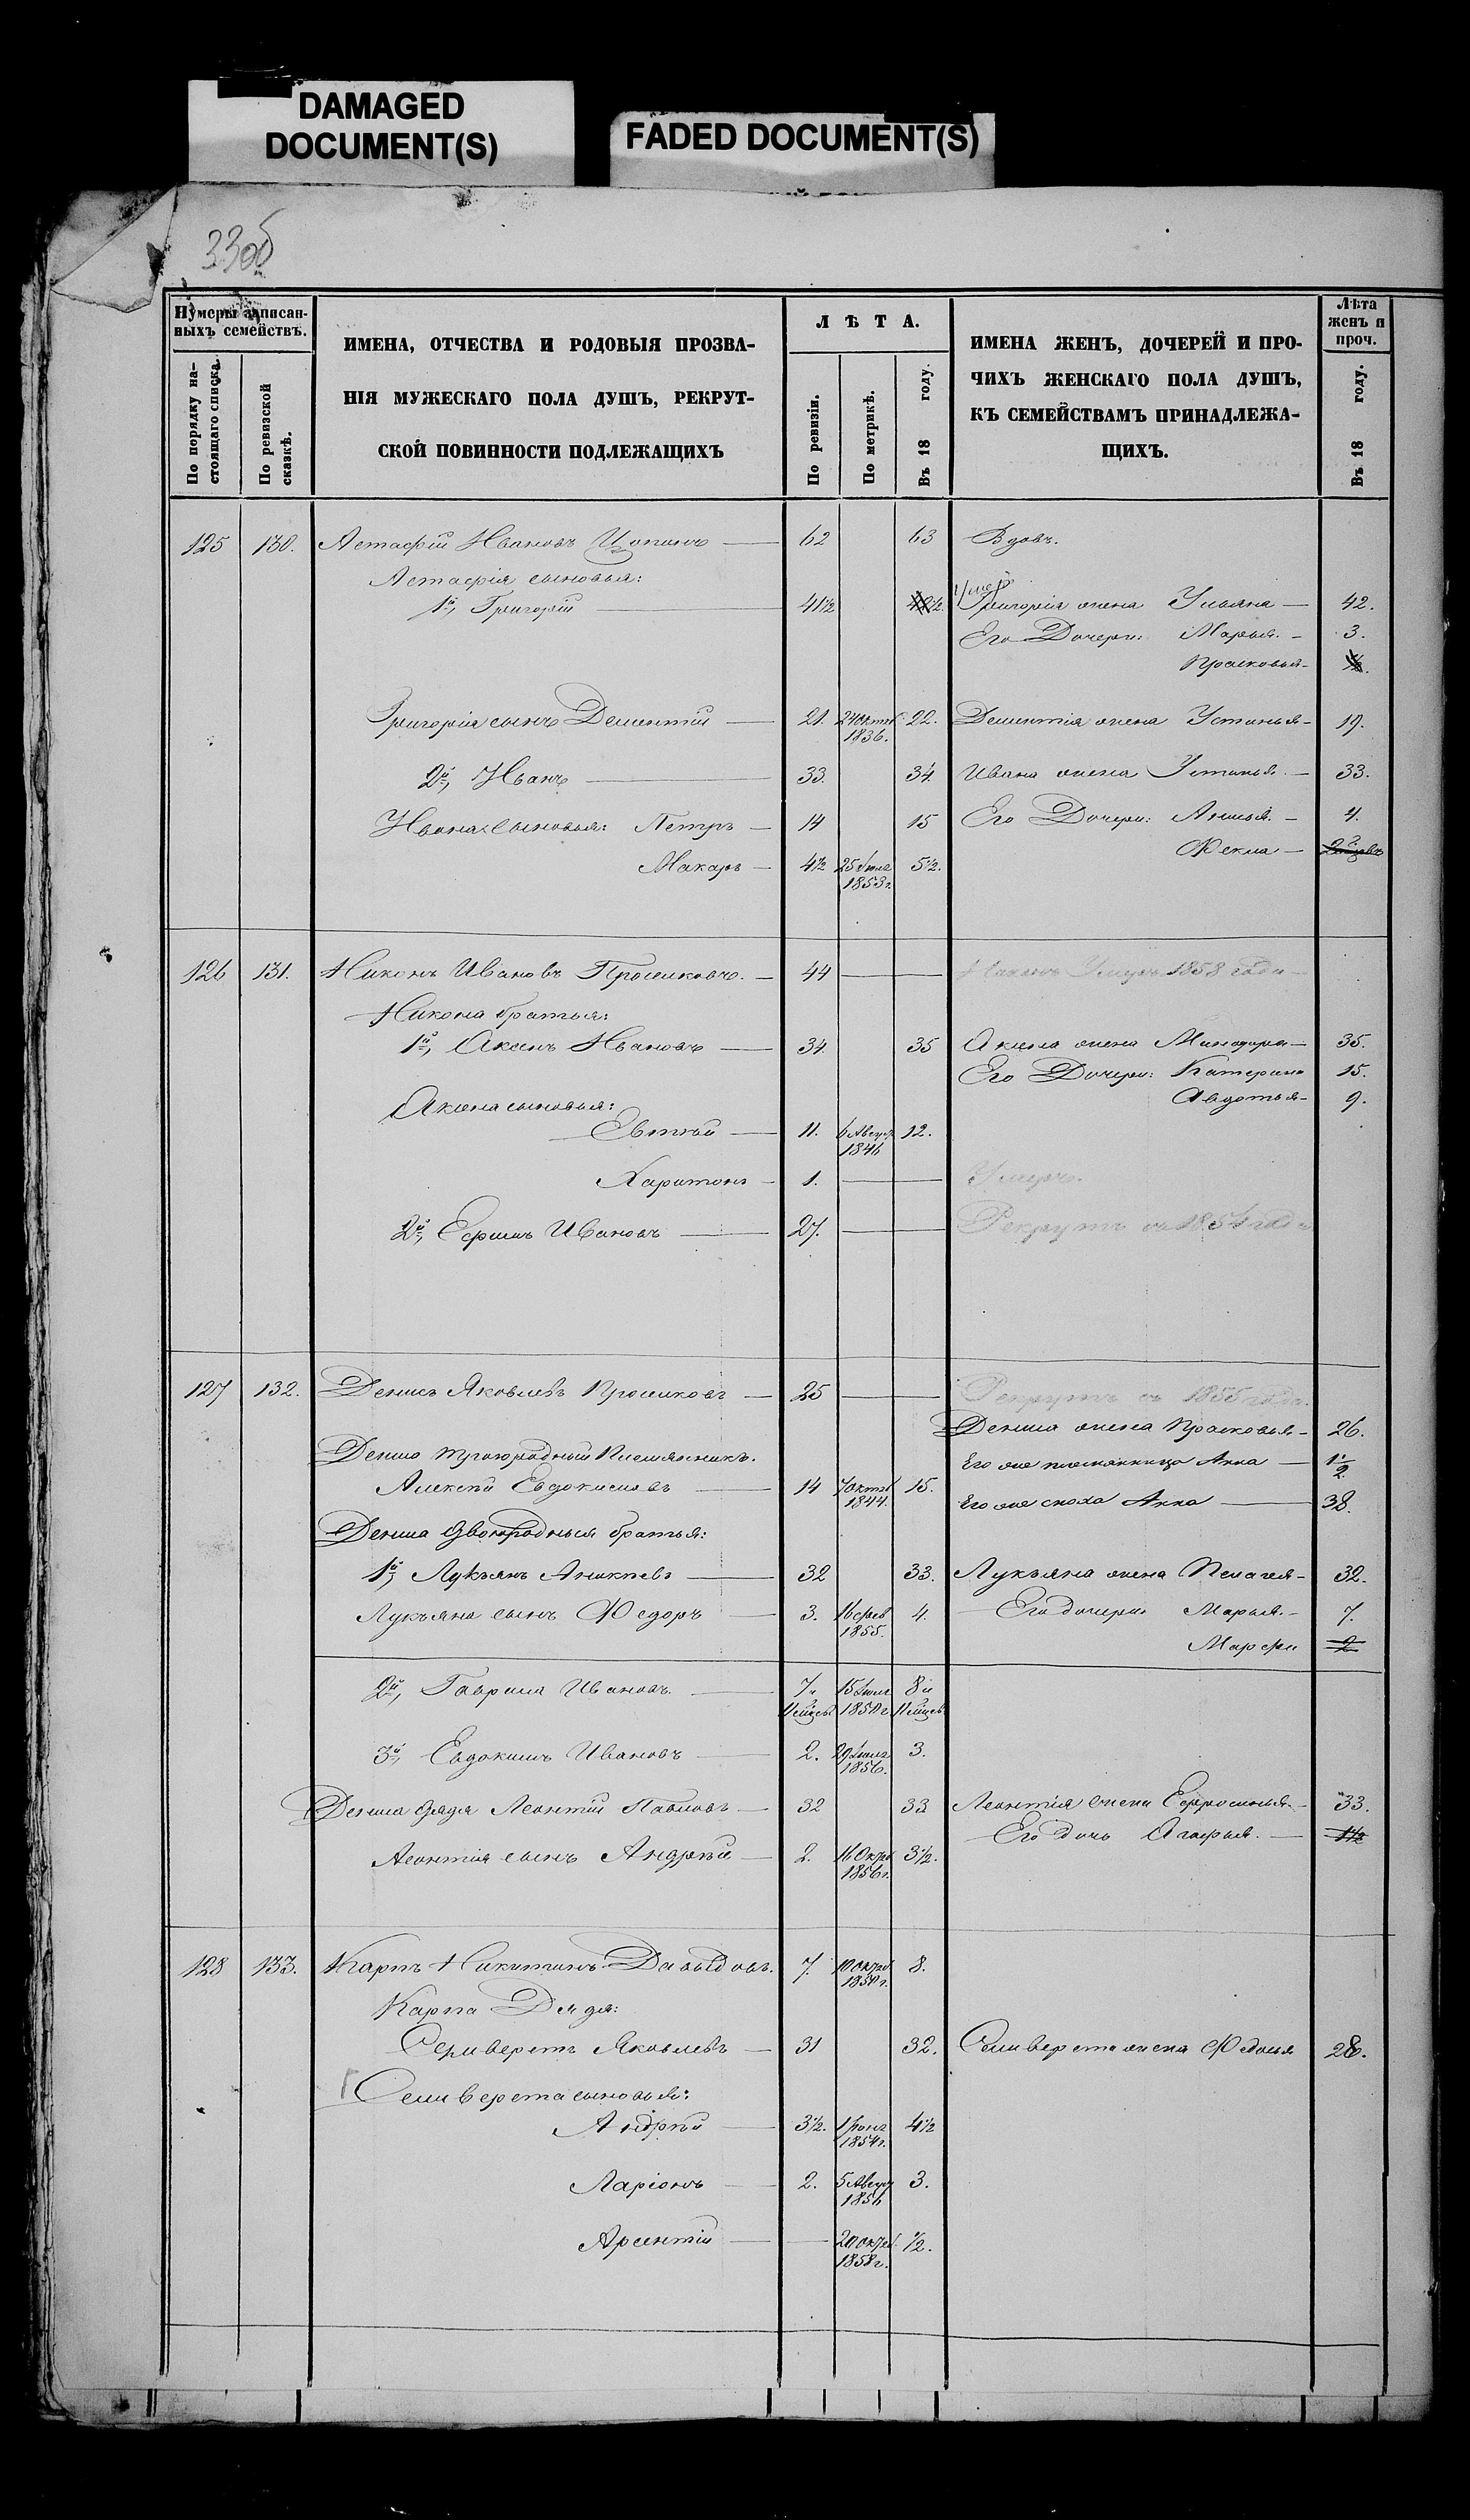 DAMAGED
DOCUMENT(S)
FADED DOCUMENT(S)
33об
Нумеры записан-
ныхъ семействъ.
По порядку на-
стоящаго списка.
По ревизской
сказкѣ.
ИМЕНА, ОТЧЕСТВА И РОДОВЫЯ ПРОЗВА-
НІЯ МУЖЕСКАГО ПОЛА ДУШЪ, РЕКРУТ-
СКОЙ ПОВИННОСТИ ПОДЛЕЖАЩИХЪ
ЛѢТА.
По ревизіи.
По метрикѣ.
Въ 18 году.
ИМЕНА ЖЕНЪ, ДОЧЕРЕЙ И ПРО-
ЧИХЪ ЖЕНСКАГО ПОЛА ДУШЪ,
КЪ СЕМЕЙСТВАМЪ ПРИНАДЛЕЖА-
ЩИХЪ.
Лѣта
женъ и
проч.
Въ 18 году.
125 130. Астафій Ивановъ 62 63 Вдовъ.
Астафія сыновья:
умеръ
1й, Григорій 41½ Григорія жена Ульяна 42.
Его Дочери: Марья 3.
Прасковья
Григорія сынъ Дементій 21. 24 Октяб 1836. 22. Дементія жена Устинья 19.
2й, Иванъ 33. 34. Ивана жена Устинья 33.
Ивана сыновья: Петръ 14 15 Его Дочери: Анисья 4.
Макаръ 4½ 25 Іюля 1853г. 5½. Фекла
126 131. Никонъ Ивановъ Просиковъ. 44 Никонъ Умеръ 1858 года
Никона братья:
1й, Аксенъ Ивановъ 34. 35 Аксена жена Минодора 35.
Его Дочери: Катерина 15.
Авдотья 9.
Аксена сыновья:
Евтѣй 11. 6 Август 1846 12.
Харитонъ 1. Умеръ.
2й, Ефимъ Ивановъ 27. Рекрутъ съ 1854 года
127 132. Денисъ Яковлевъ Просиковъ 25 Рекрутъ съ 1855 года.
Дениса жена Прасковья 26.
Дениса троюродный племянникъ.
Его же племянница Анна 1½
Алексѣй Евдокимовъ 14 7 Октяб 1844. 15.
Его же сноха Анна 38.
Дениса двоюродныя братья:
1й, Лукьянъ Аникѣевъ 32 33. Лукьяна жена Пелагея 32.
Лукьяна сынъ Федоръ 3. 16 фев 1855. 4. Его дочери Марья 7.
Марфа 2
2й, Гаврила Ивановъ 7 и 15 Іюля 1850г. 8 и
3й, Евдокимъ Ивановъ 2. 29 Іюля 1856. 3.
Дениса дядя Леонтій Павловъ 32 33 Леонтія жена Ефросинья 33.
Его дочь Агафья. 1½
Леонтія сынъ Андрѣй 2. 16 Октяб 1856г. 3½.
128 133. Карпъ Никитинъ Давыдовъ. 7. 10 Октяб 1850г. 8.
Карпа Дядя:
Селиверстъ Яковлевъ 31 32. Селиверста жена Федосья 28.
Селиверста сыновья:
Андрѣй 3½. 1 Іюня 1854г. 4½
Ларіонъ 2. 5 Август 1856 3.
Арсентій 20 Октяб 1858г. ½.